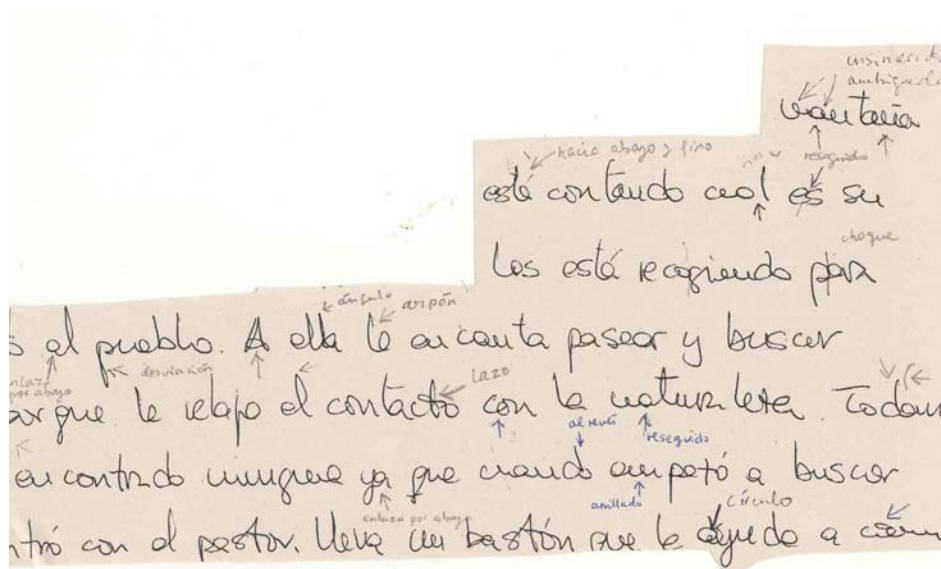 ambigueda
hacia abajo y fino
reseguido
está contando cual es su
choque
los está recogiendo para
ángulo arpón
s al pueblo. A ella le encanta pasear y buscar
enlaza por abajo
desviación
lazo
orque le relaja el contacto con la naturaleza. Todaví
al revés
reseguido
encontrado ninguna ya que cuando empezó a buscar
enlaza por abajo
anillado
círculo
ntró con el pastor. Lleva un bastón que le ayuda a